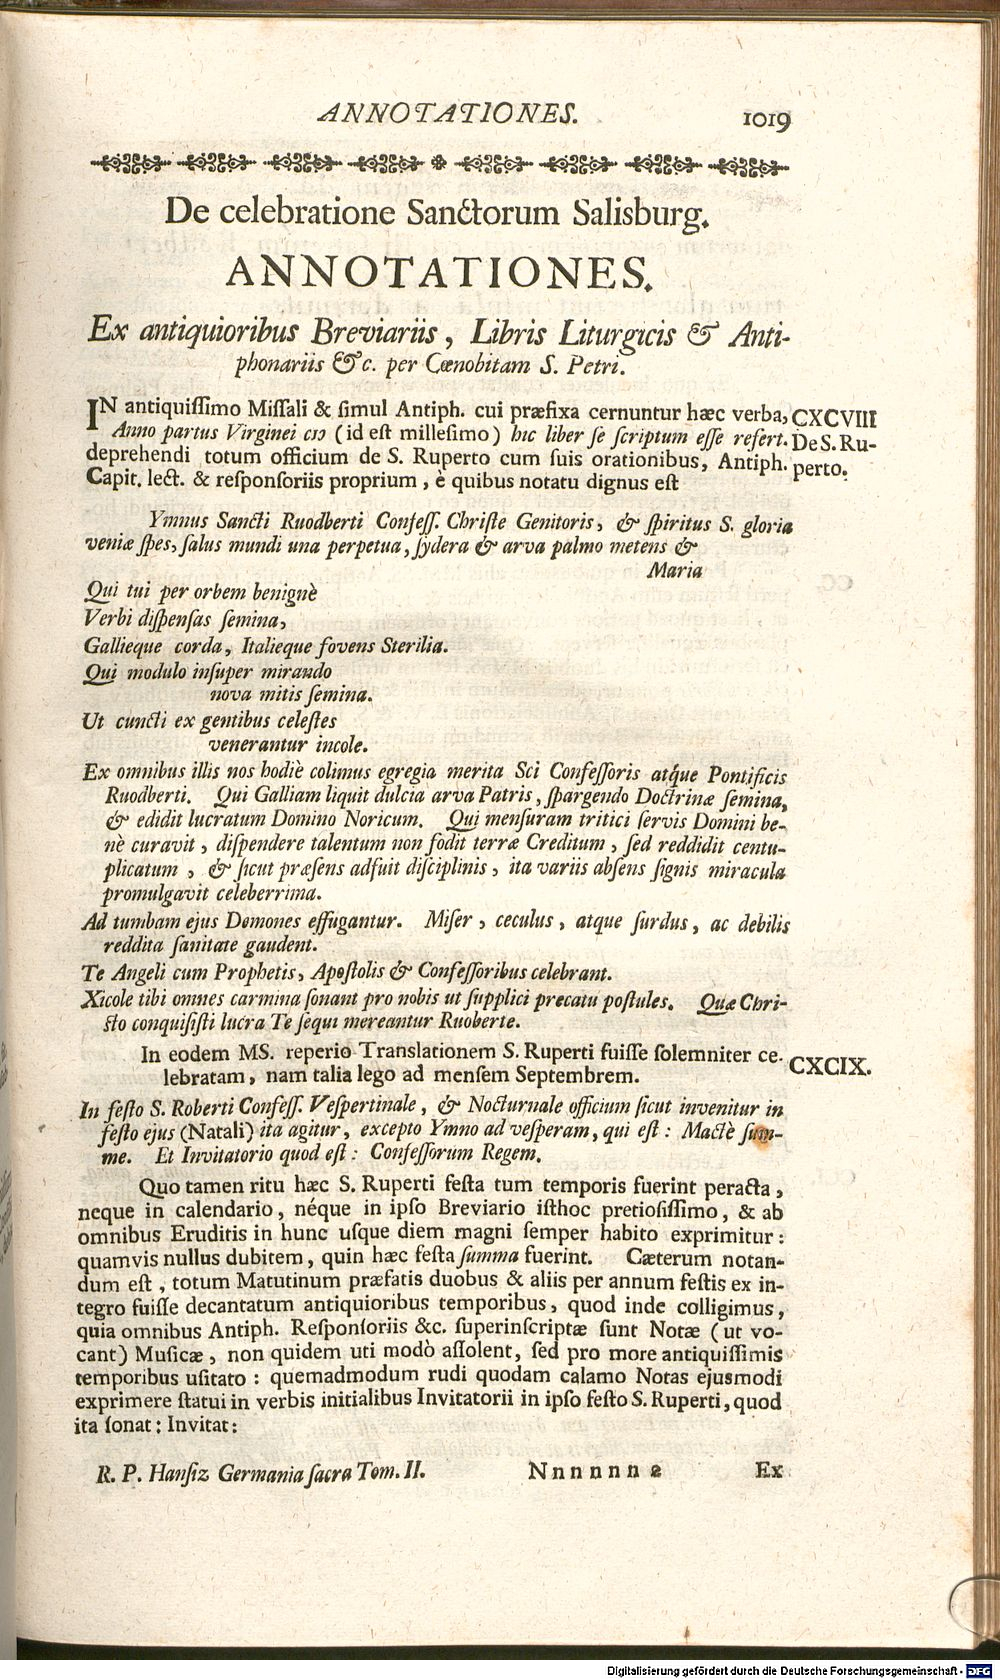 ANNOTATIONES. 1019
De celebratione Sanctorum Salisburg.
ANNOTATIONES.
Ex antiquioribus Breviariis, Libris Liturgicis & Anti-
phonariis &c. per Cœnobitam S. Petri.
IN antiquissimo Missali & simul Antiph. cui præfixa cernuntur hæc verba, CXCVIII
Anno partus Virginei cıɔ (id est millesimo) hic liber se scriptum esse refert. De S. Ru-
deprehendi totum officium de S. Ruperto cum suis orationibus, Antiph. perto.
Capit. lect. & responsoriis proprium, è quibus notatu dignus est
Ymnus Sancti Ruodberti Confess. Christe Genitoris, & spiritus S. gloria
veniæ spes, salus mundi una perpetua, sydera & arva palmo metens &
Maria
Qui tui per orbem benignè
Verbi dispensas semina,
Gallieque corda, Italieque fovens Sterilia.
Qui modulo insuper mirando
nova mitis semina.
Ut cuncti ex gentibus celestes
venerantur incole.
Ex omnibus illis nos hodiè colimus egregia merita Sci Confessoris atq́ue Pontificis
Ruodberti. Qui Galliam liquit dulcia arva Patris, spargendo Doctrinæ semina,
& edidit lucratum Domino Noricum. Qui mensuram tritici servis Domini be-
nè curavit, dispendere talentum non fodit terræ Creditum, sed reddidit centu-
plicatum, & sicut præsens adfuit disciplinis, ita variis absens signis miracula
promulgavit celeberrima.
Ad tumbam ejus Demones effugantur. Miser, ceculus, atque surdus, ac debilis
reddita sanitate gaudent.
Te Angeli cum Prophetis, Apostolis & Confessoribus celebrant.
Xicole tibi omnes carmina sonant pro nobis ut supplici precatu postules. Quæ Chri-
sto conquisisti lucra Te sequi mereantur Ruoberte.
In eodem MS. reperio Translationem S. Ruperti fuisse solemniter ce- CXCIX.
lebratam, nam talia lego ad mensem Septembrem.
In festo S. Roberti Confess. Vespertinale, & Nocturnale officium sicut invenitur in
festo ejus (Natali) ita agitur, excepto Ymno ad vesperam, qui est: Mactè sum-
me. Et Invitatorio quod est: Confessorum Regem.
Quo tamen ritu hæc S. Ruperti festa tum temporis fuerint peracta,
neque in calendario, néque in ipso Breviario isthoc pretiosissimo, & ab
omnibus Eruditis in hunc usque diem magni semper habito exprimitur:
quamvis nullus dubitem, quin hæc festa summa fuerint. Cæterum notan-
dum est, totum Matutinum præfatis duobus & aliis per annum festis ex in-
tegro fuisse decantatum antiquioribus temporibus, quod inde colligimus,
quia omnibus Antiph. Responsoriis &c. superinscriptæ sunt Notæ (ut vo-
cant) Musicæ, non quidem uti modò assolent, sed pro more antiquissimis
temporibus usitato: quemadmodum rudi quodam calamo Notas ejusmodi
exprimere statui in verbis initialibus Invitatorii in ipso festo S. Ruperti, quod
ita sonat: Invitat:
R. P. Hansiz Germania sacra Tom. II. Nnnnnn 2 Ex
Digitalisierung gefördert durch die Deutsche Forschungsgemeinschaft - DFG